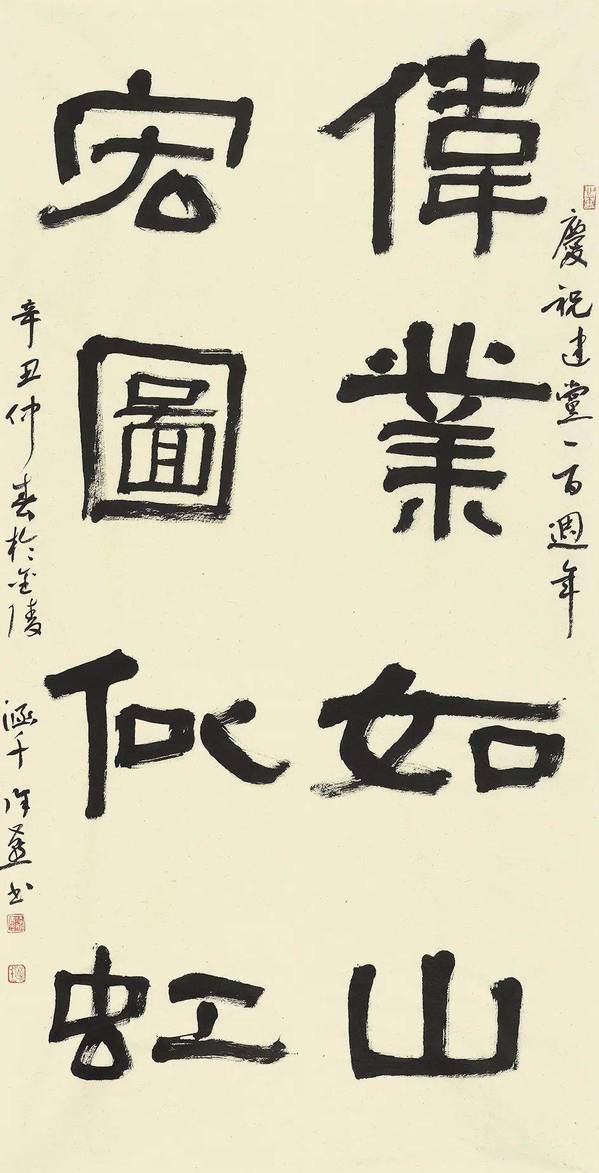 慶祝建黨一百週年
偉業如山
宏圖似虹
辛丑仲春於金陵
涵千書